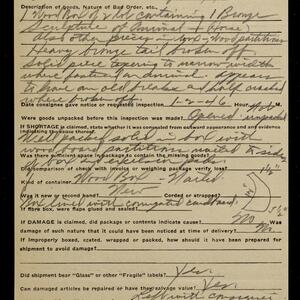 Description of goods, Nature of Bad Order, etc.
1 Wood Box containing 1 Bronze
Sculpture of Animal (Horse)
Also other pieces
Heavy bronze tail broken off
Solid piece tapering to narrow width
where fastened animal. appears
to have an old break and half cracked
where broken off
Date consignee gave notice or requested inspection 1-2-46 Hour M.
Were goods unpacked before this inspection was made? Opened unpacked
If SHORTAGE is claimed, state what was computed from outward appearance of package and conditions indicating evidence thereof.
solid box with
wood board partitions nailed to sides
Was there sufficient space in package to contain the missing goods?
Did comparison of check with invoice or weighing package verify loss?
Kind of container. Wood Box - Nailed
Was it new or second hand? New Corded or strapped?
If fibre box, were flaps glued and stapled?
Box lined with corrugated cardboard
If DAMAGE is claimed, did package or contents indicate cause? No
Was damage of such nature that it could have been noticed at time of delivery? No.
If improperly boxed, crated, wrapped or packed, how should it have been prepared for shipment to avoid damage?
Did shipment bear "Glass" or other "Fragile" labels? Yes.
Can damaged articles be repaired or have they salvage value? Yes.
Left with consignee
5½"